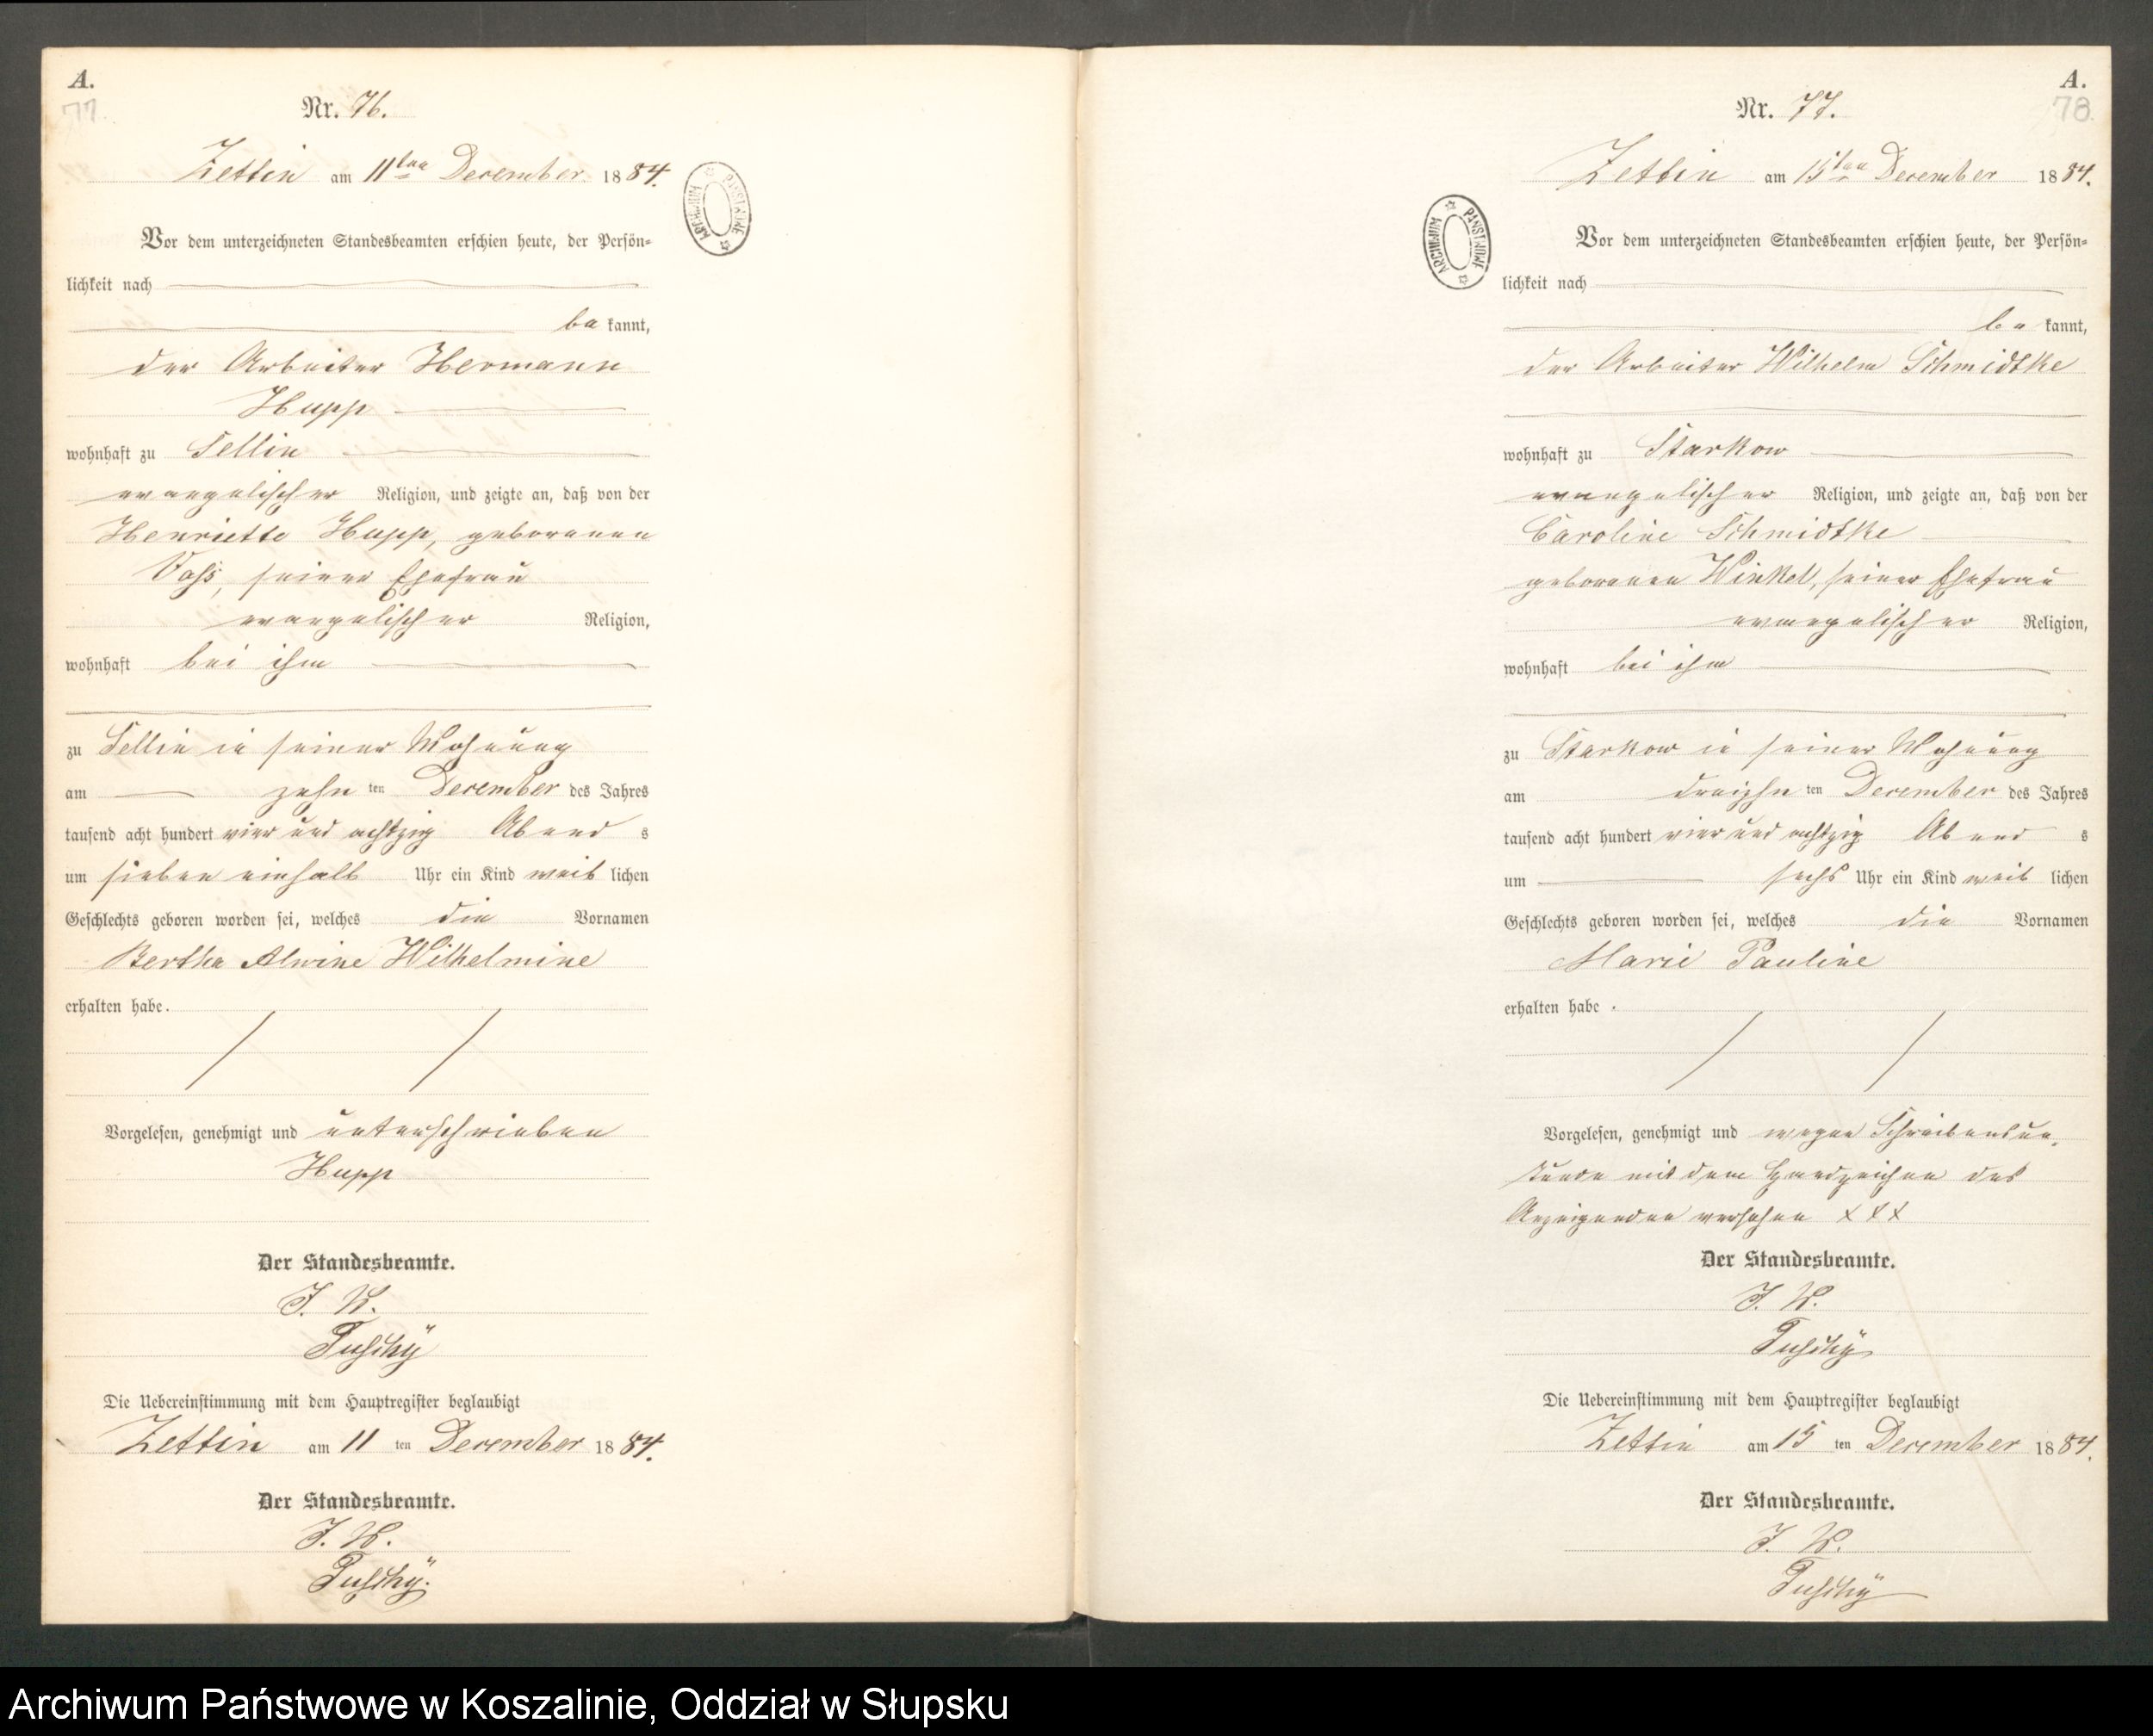 A.
77.
Nr. 76.
Zettin am 11ten December 1884.
ARCHIWUM PAŃSTWOWE
Vor dem unterzeichneten Standesbeamten erschien heute, der Persön-
lichkeit nach
be kannt,
der Arbeiter Hermann
Hupp
wohnhaft zu Sellin
evangelischer Religion, und zeigte an, daß von der
Henriette Hupp, geborenen
Voß, seiner Ehefrau
evangelischer Religion,
wohnhaft bei ihm
zu Sellin in seiner Wohnung
am zehn ten December des Jahres
tausend acht hundert vier und achtzig Abend s
um sieben einhalb Uhr ein Kind weib lichen
Geschlechts geboren worden sei, welches die Vornamen
Bertha Alwine Wilhelmine
erhalten habe.
Vorgelesen, genehmigt und unterschrieben
Hupp
Der Standesbeamte.
J. V.
Die Uebereinstimmung mit dem Hauptregister beglaubigt
Zettin am 11 ten December 1884.
Der Standesbeamte.
J. V.
A.
78.
Nr. 77.
Zettin am 15ten December 1884.
ARCHIWUM PAŃSTWOWE
Vor dem unterzeichneten Standesbeamten erschien heute, der Persön-
lichkeit nach
be kannt,
der Arbeiter Wilhelm Schmidtke
wohnhaft zu Starkow
evangelischer Religion, und zeigte an, daß von der
Caroline Schmidtke
geborenen Winkel, seiner Ehefrau
evangelischer Religion,
wohnhaft bei ihm
zu Starkow in seiner Wohnung
am dreizehn ten December des Jahres
tausend acht hundert vier und achtzig Abend s
um sechs Uhr ein Kind weib lichen
Geschlechts geboren worden sei, welches die Vornamen
Marie Pauline
erhalten habe.
Vorgelesen, genehmigt und wegen Schreibensun-
kunde mit dem Handzeichen des
Anzeigenden versehen XXX
Der Standesbeamte.
J. V.
Die Uebereinstimmung mit dem Hauptregister beglaubigt
Zettin am 15 ten December 1884.
Der Standesbeamte.
J. V.
Archiwum Państwowe w Koszalinie, Oddział w Słupsku